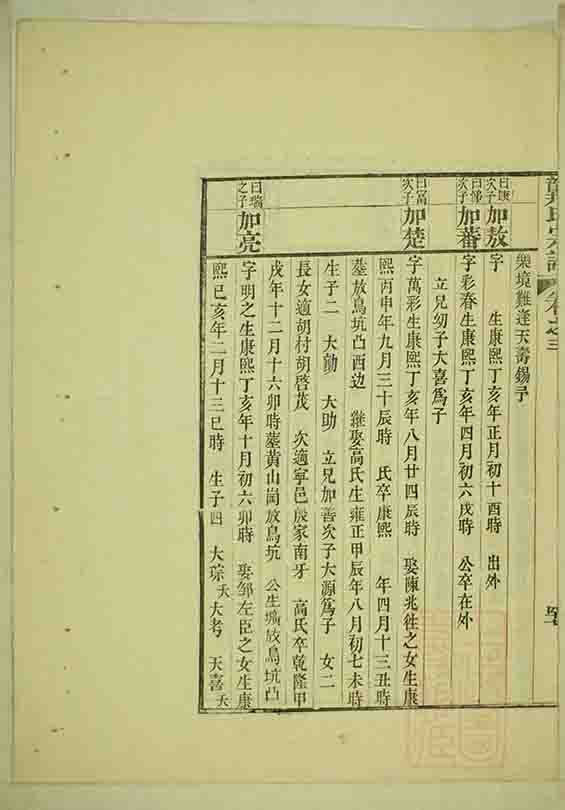 卷之三
樂境難逢天壽錫予
曰康次子加敖
字 生康熙丁亥年正月初十酉時 出外
次子加蕃
字彩春生康熙丁亥年四月初六戌時 公卒在外
立兄幼子大喜爲子
曰富次子加楚
字萬彩生康熙丁亥年八月廿四辰時 娶陳兆往之女生康
熙丙申年九月三十辰時 氏卒康熙 年四月十三丑時
墓放鳥坑凸西边 繼娶高氏生雍正甲辰年八月初七未時
生子二 大勛 大助 立兄加善次子大源爲子 女二
長女適胡村胡啓茂 次適寧邑辰家南牙 高氏卒乾隆甲
戌年十二月十六卯時墓黄山崗放鳥坑 公生壙放鳥坑凸
曰瑞之子加亮
字明之生康熙丁亥年十月初六卯時 娶邹左臣之女生康
熙己亥年二月十三巳時 生子四 大琮夭 大考 天喜夭